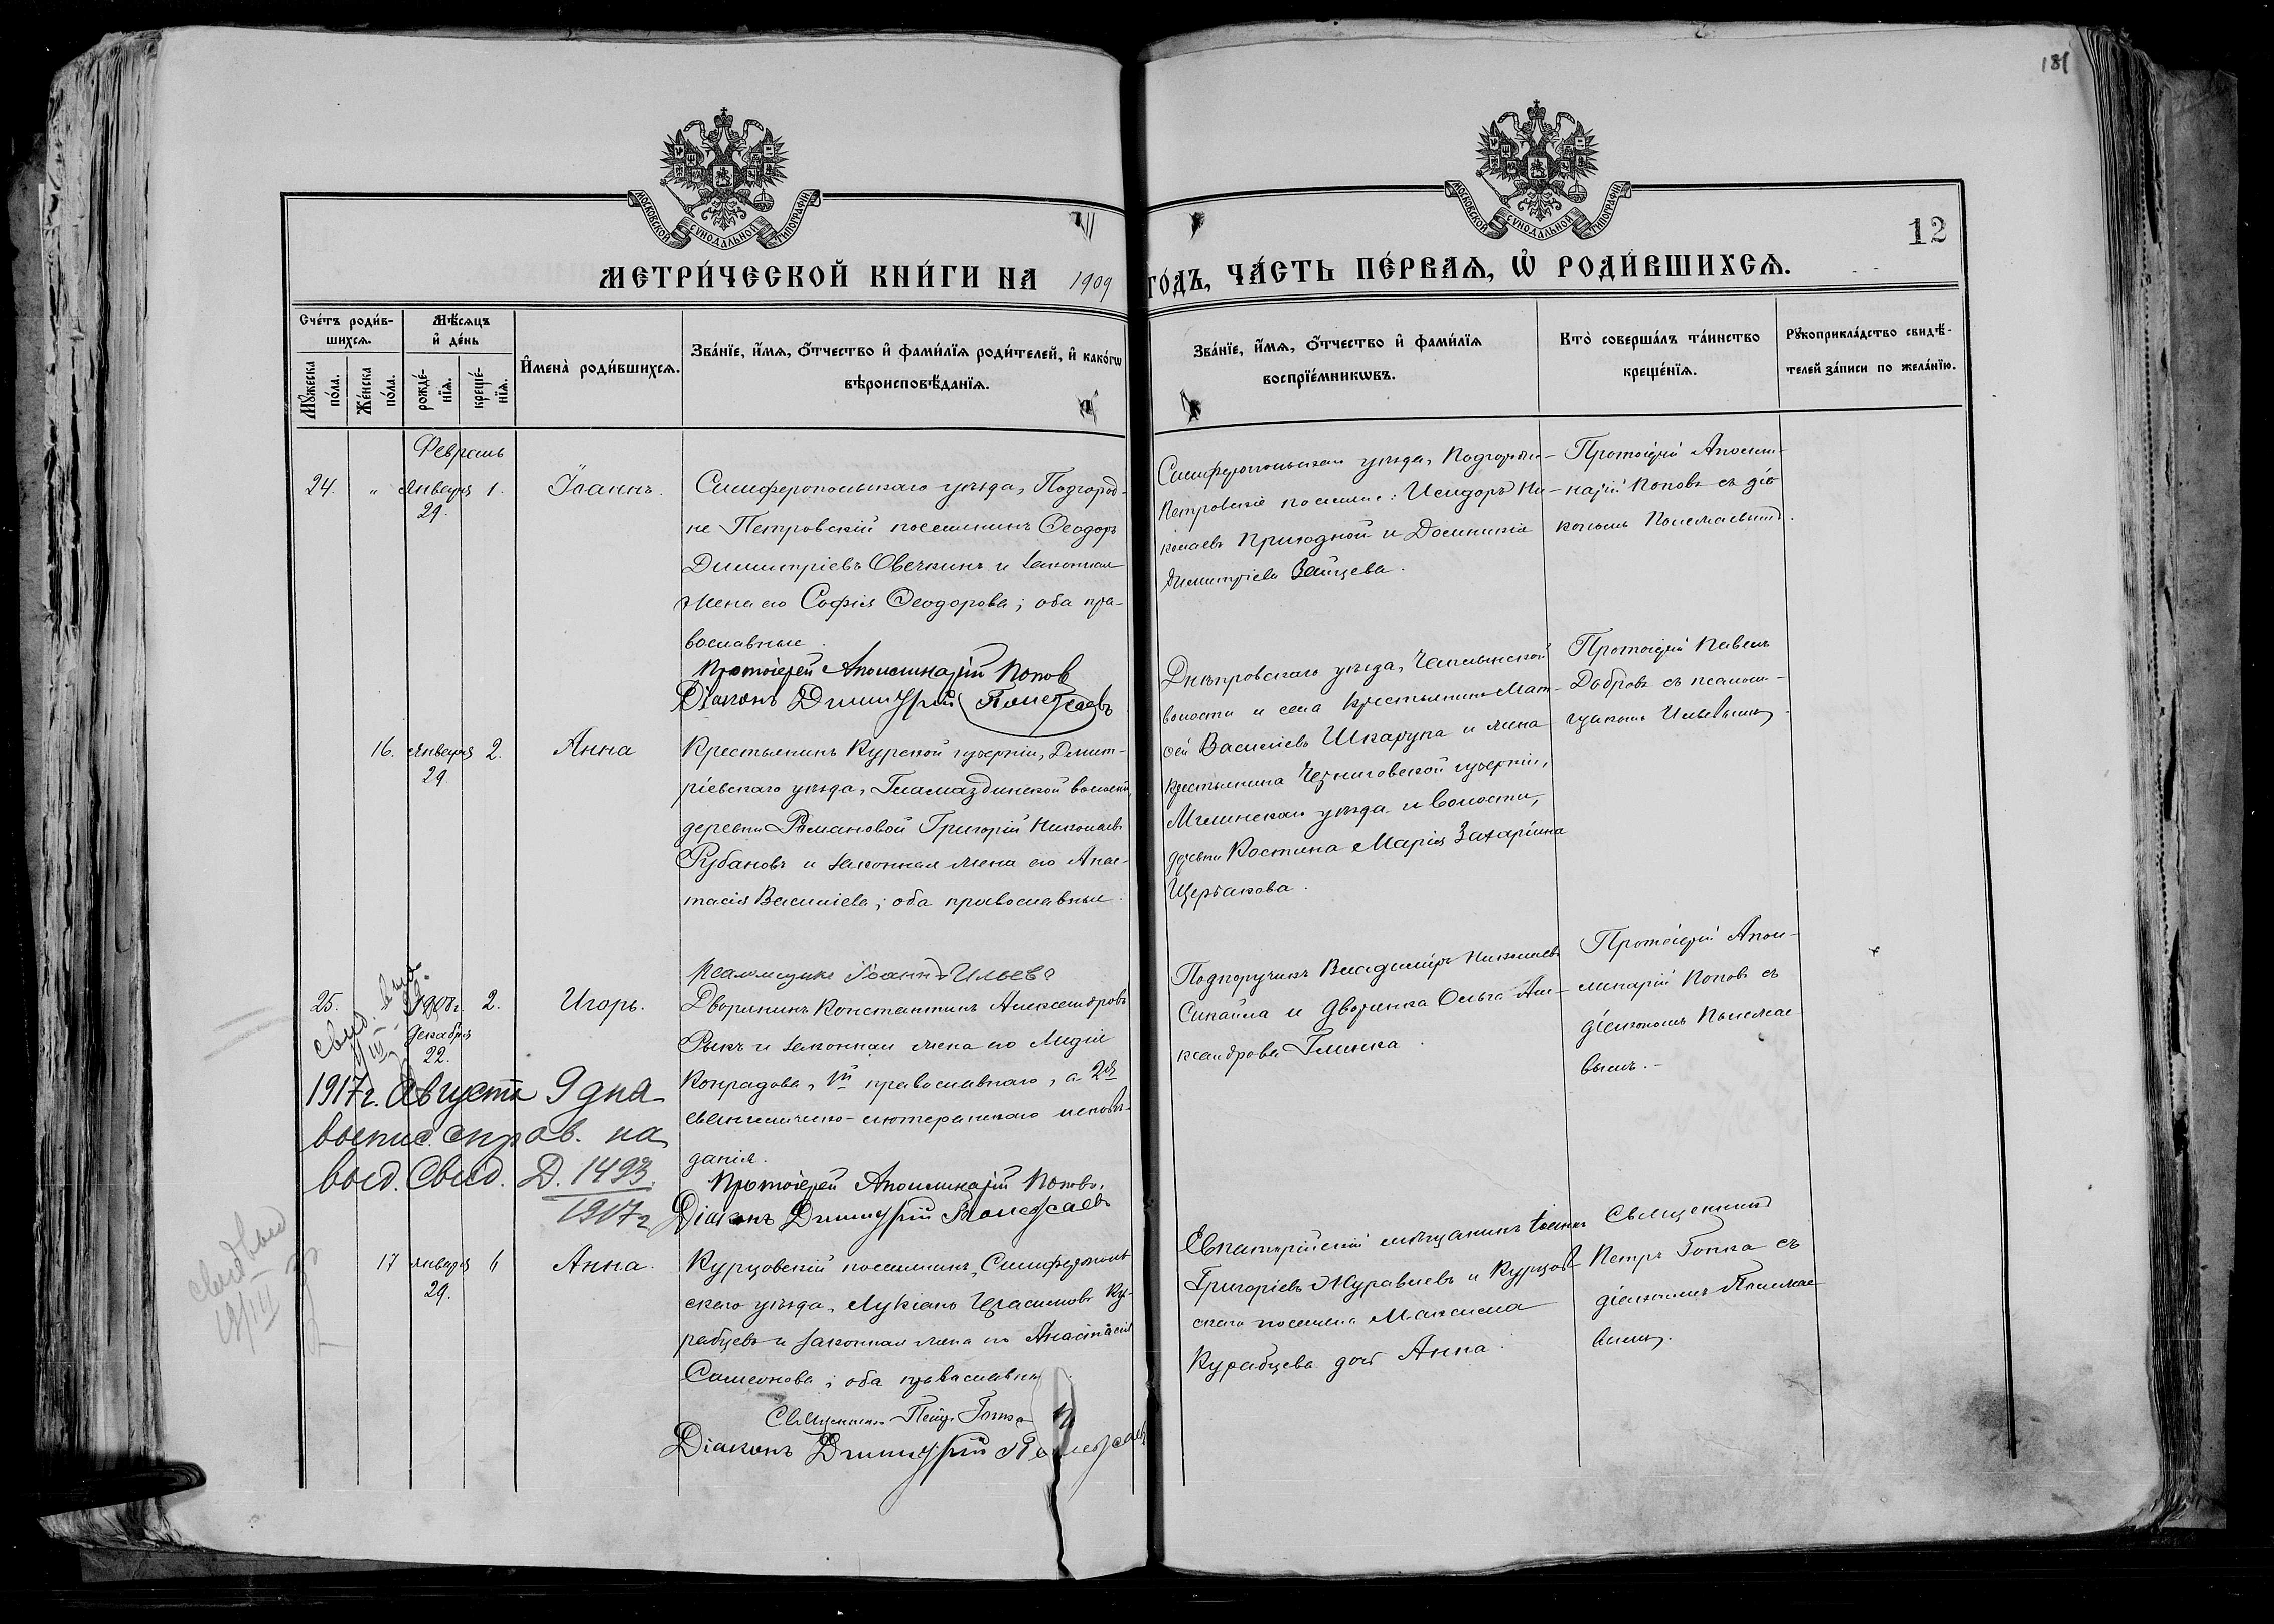 181
МОСКОВСКОЙ СѴНОДАЛЬНОЙ ТИПОГРАФІИ
МОСКОВСКОЙ СѴНОДАЛЬНОЙ ТИПОГРАФІИ
12
МЕТРИ́ЧЕСКОЙ КНИ́ГИ НА 1909
ГО́ДЪ, ЧА́СТЬ ПЕ́РВАѦ, Ѡ҆ РОДИ́ВШИХСѦ.
Сче́тъ роди́в-
шихсѧ.
Мꙋжеска по́ла.
Же́нска по́ла.
Мѣ́сѧцъ
и҆ де́нь
рожде́-
нїѧ.
креще́-
нїѧ.
И҆мена̀ роди́вшихсѧ.
Зва́нїе, и҆́мѧ, ѻ҆́тчество и҆ фами́лїѧ роди́телей, и҆ како́гѡ
вѣроисповѣ́данїѧ.
Зва́нїе, и҆́мѧ, ѻ҆́тчество и҆ фами́лїѧ
воспрїе́мникѡвъ.
Кто̀ соверша́лъ та́инство
креще́нїѧ.
Рꙋкоприкла́дство свидѣ́-
телей за́писи по жела́нїю.
Февраль
24. " Января 1. Іоаннъ.
29.
Симферопольскаго уѣзда, Подгород-
не Петровскій поселянинъ Ѳеодоръ
Димитріевъ Овечкинъ и законная
жена его Софія Ѳеодорова; оба пра-
вославные.
Протоіерей Аполлинарій Попов
Діаконъ Димитрій
Симферопольскаго уѣзда, Подгородне-
Петровскіе поселяне: Исидоръ Ни-
колаевъ Приходной и Домникія
Димитріева Зайцева.
Протоіерей Аполли-
нарій Поповъ съ діа-
кономъ
16. Января 2. Анна
29
Крестьянинъ Курской губерніи, Дмит-
ріевскаго уѣзда, волости,
деревни Романовой Григорій Николаевъ
Рубановъ и законная жена его Анас-
тасія Василіева; оба православные.
Псаломщикъ Іоаннъ Ильевъ
Днѣпровскаго уѣзда, Чаплынской
волости и села крестьянинъ Мат-
ѳей Василіевъ Шкарупа и жена
крестьянина Черниговской губерніи,
Мглинскаго уѣзда и волости,
деревни Костина Марія Захаріина
Щербакова.
Протоіерей Павелъ
Добровъ съ псалом-
щикомъ Ильевымъ.
25. 1908г. 2. Игорь.
Декабря
22.
Дворянинъ Константинъ Александровъ
Рыкъ и законная жена его Лидія
Конрадова, 1й православнаго, а 2я
евангелическо-лютеранскаго исповѣ-
данія.
Протоіерей Аполлинарій Поповъ.
Діаконъ Димитрій
Подпоручикъ Владиміръ Николаевъ
и дворянка Ольга Але-
ксандрова Глинка.
Протоіерей Апол-
линарій Поповъ съ
діакономъ
вымъ.-
1917г. Августа 9 дня
выпис. справ. на
выд. Свид. Д. 1493.
1917г
17 января 6 Анна.
29.
Курцовскій поселянинъ, Симферополь-
скаго уѣзда, Лукіанъ Герасимовъ Ку-
рабцевъ и законная жена его Анастасія
Симеонова; оба православные
Священникъ Петръ Гопка
Діаконъ Димитрій
Евпаторійскій мѣщанинъ Іоаннъ
Григоріевъ Журавлевъ и Курцов-
скаго поселян. Максима
Курабцева дочь Анна.
Священникъ
Петръ Гопка съ
діакономъ
вымъ.